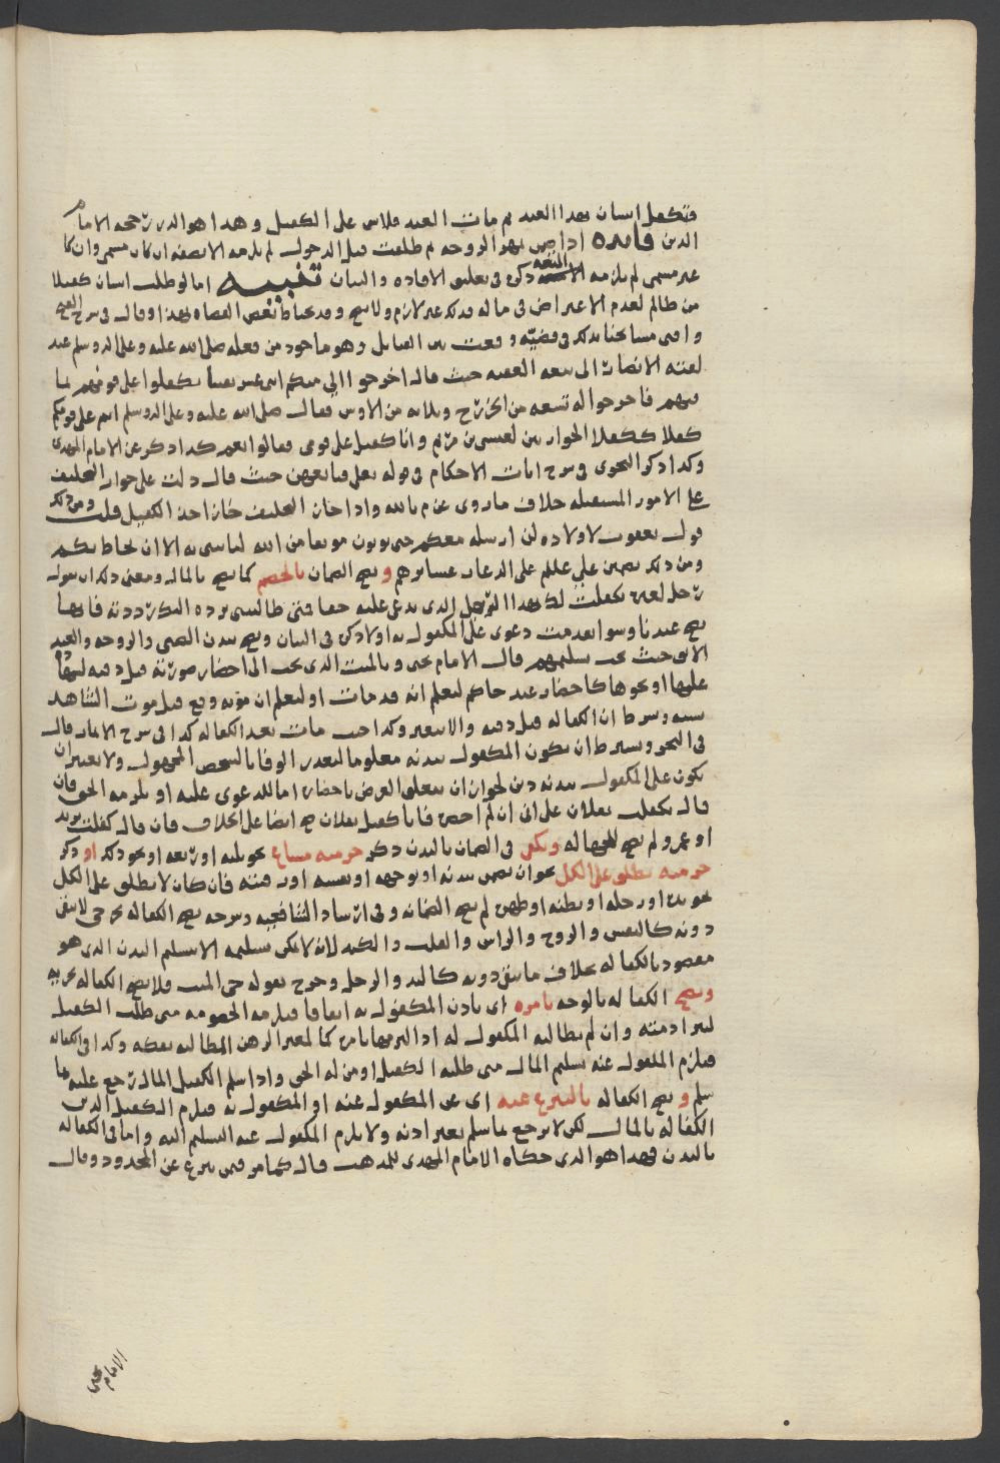 فتكفل انسان بهذا العبد ثم مات العبد فلا شي على الكفيل وهذا هو الذي رجحه الامام
الدين فايده اذا ضمن بمهر الزوجه ثم طلقت قبل الدخول لم يلزمه الا نصفه ان كان مسمى وان كان
غير مسمى لم يلزمه الا المتعه ذكره في تعليق الافاده والبيان تنبيه اما لو طلب انسان كفيلا
من ظالم لعدم الاعتراض في ماله فذلك غير لازم ولا يصح وقد يحتاط بعض القضاه بهذا وقال في شرح الفتح
وافتى مشايخنا بذلك في قضيه وقعت بين القبايل وهو ماخوذ من فعله صلى الله عليه وعلى اله وسلم عند
لقيته الانصار الى بيعه العقبه حيث قال اخرجوا الي منكم اثنى عشر نقيبا يكفلوا على قومهم بما
فيهم فاخرجوا له تسعه من الخزرج وثلاثه من الاوس فقال صلى الله عليه وعلى اله وسلم انتم على قومكم
كفلا ككفلا الحواريين لعيسى بن مريم وانا كفيل على قومي فقالوا نعم كذا ذكر عن الامام المهدي
وكذا ذكر النجري في شرح ايات الاحكام في قوله تعلى فبايعهن حيث قال دلت على جواز التحليف
على الامور المستقبله خلاف ما روي عن م بالله واذا جاز التحليف جاز اخذ الكفيل قلت ومن ذلك
قول يعقوب لاولاده لن ارسله معكم حتى توتون موثقا من الله لتاتنني به الا ان يحاط بكم
ومن ذلك تضمين علي عللم على الدعار عشايرهم ويصح الضمان بالخصم كما يصح بالمال ومعنى ذلك ان يقول
رجل لغيره تكفلت لك بهذا الرجل الذي تدعي عليه حقا فمتى طالبتني برده اليك رددته فانها
تصح عندنا وسوا تقدمت دعوى على المكفول به او لا ذكره في البيان ويصح ببدن الصبي والزوجه والعبد
الابق حيث يجب تسليمهم قال الامام يحيى وبالميت الذي يجب الى احضار صورته قبل دفنه ليشهد
عليها او نحوها كاحضاره عند حاكم ليعلم انه قد مات او ليعلم ان موته وقع قبل موت الشاهد
بينه وشرط ان الكفاله قبل دفنه والا يتغير وكذا حيث مات بعد الكفاله كذا في شرح الاثمار قال
في البحر ويشترط ان يكون المكفول ببدنه معلوما لتعذر الوفا بالشخص المجهول ولا يعتبر ان
يكون على المكفول ببدنه دين لجواز ان يتعلق الغرض باحضاره اما للدعوى عليه او يلزمه الحق فان
قال تكفلت بفلان على اني ان لم احضره فانا كفيل بفلان صح ايضا على الخلاف فان قال كفلت بزيد
او عمرو لم يصح للجهاله ويكفي في الضمان بالبدن ذكر جزء منه مشاع نحو ثلثه او ربعه او نحو ذلك او ذكر
جزء منه يطلق على الكل نحو ان يضمن ببدنه او بوجهه او نفسه او رقبته فان كان لا يطلق على الكل
نحو يده او رجله او بطنه او ظهره لم يصح الضمانه وفي ارشاد الشافعيه وشرحه يصح الكفاله بجزء حي لا يبقى
دونه كالنفس والروح والراس والقلب والكبد لانه لا يمكن تسليمه الا بتسليم البدن الذي هو
مقصود بالكفاله بخلاف ما يبقى دونه كاليد والرجل وخرج بقوله حي الميت فلا يصح الكفاله بجزيه
وتصح الكفاله بالوجه بامره اي باذن المكفول به اتفاقا فيلزمه الخصومه متى طلب الكفيل
ليبرا ذمته وان لم يطالبه المكفول له اذ التزمها بامره كالمعير الرهن المطالبه بفكه وكذا في الكفاله
فيلزم المكفول عنه تسليم المال متى طلبه الكفيل او من له الحق واذا سلم الكفيل المال رجع عليه بما
سلم ويصح الكفاله بالتبرع عنه اي عن المكفول عنه او المكفول به فيلزم الكفيل الدين
الكفاله بالمال لكن لا يرجع بما سلم بغير اذنه ولا يلزم المكفول عنه التسليم اليه واما في الكفاله
بالبدن فهذا هو الذي حكاه الامام المهدي للمذهب قال كما مر فيمن تبرع عن المحدود وقال
الامام يحيى